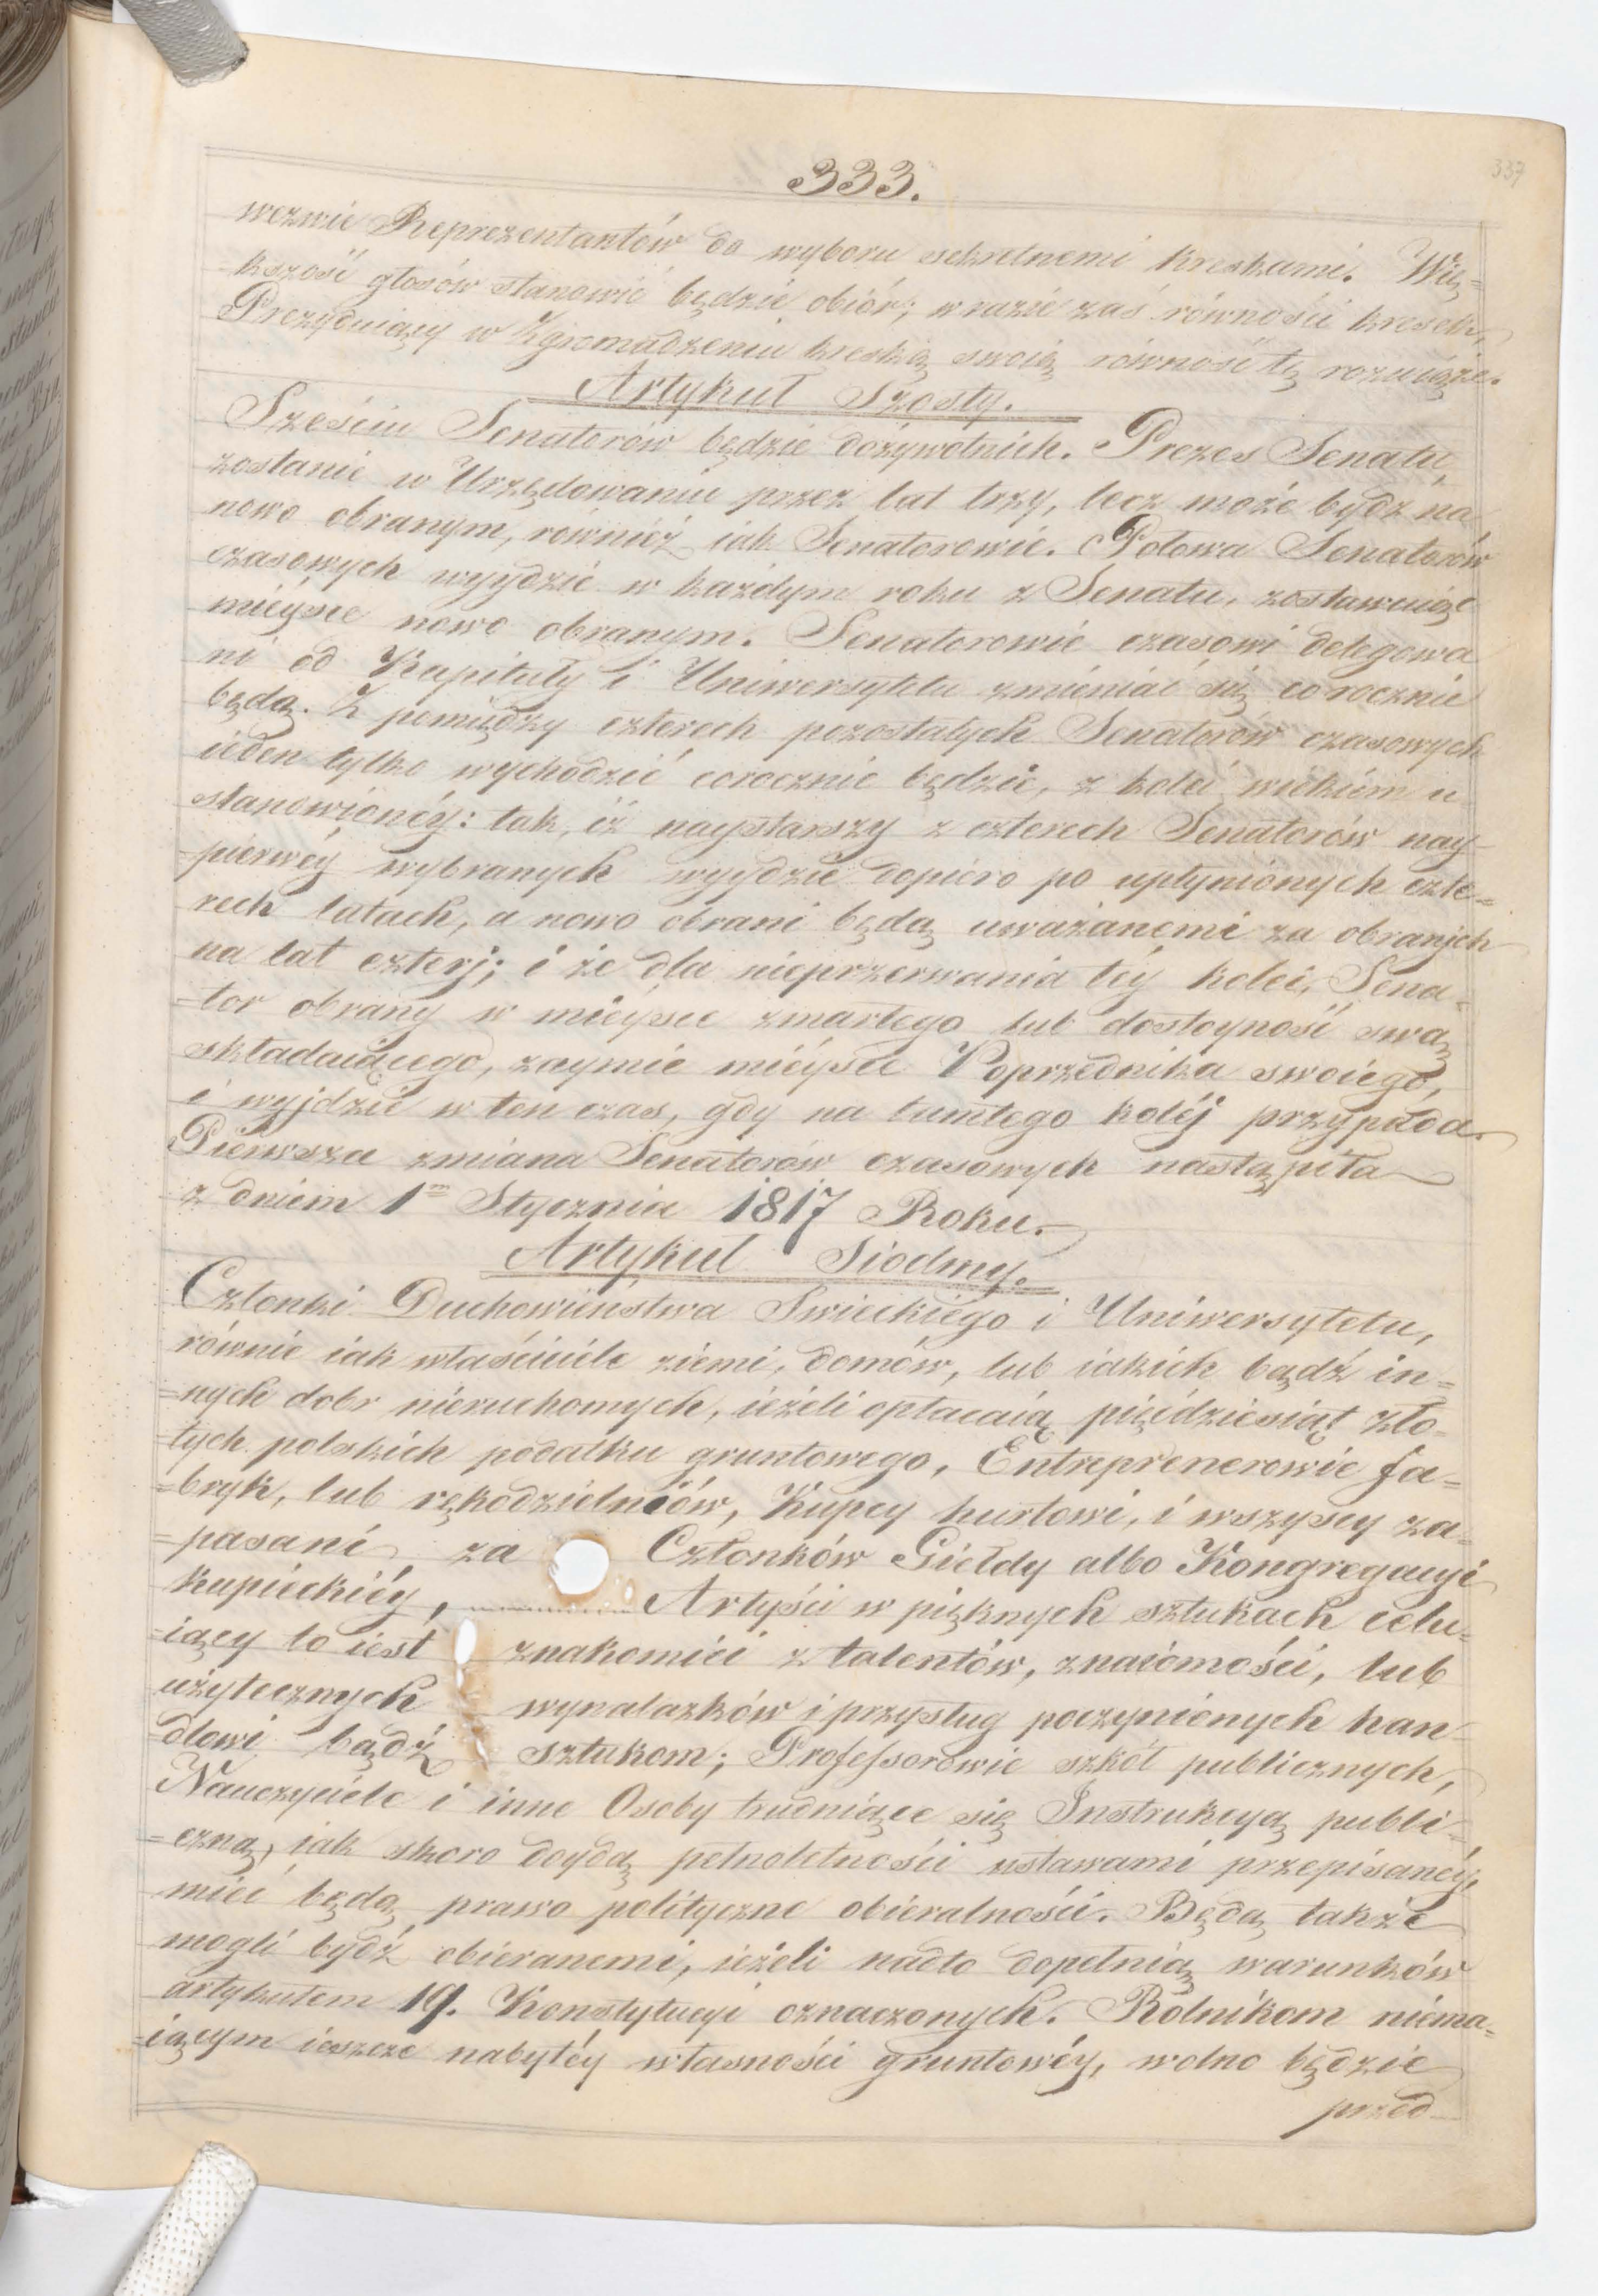 333.
337
wezwie Reprezentantów do wyboru sekretnemi kreskami. Wię=
kszość głosów stanowić będzie obiór; w razie zaś równości kresek,
Prezyduiący w Zgromadzeniu kreską swoią równość tę rozwiąże.
Artykuł Szósty.
Sześciu Senatorów będzie dożywotnich. Prezes Senatu
zostanie w Urzędowaniu przez lat trzy, lecz może bydź na
nowo obranym, równiéż iak Senatorowie. Połowa Senatorów
czasowych wyydzie w każdym roku z Senatu, zostawuiąc
miéysce nowo obranym. Senatorowie czasowi delegowa
ni od Kapituły i Uniwersytetu zmieniać się corocznie
będą. Z pomiędzy czterech pozostałych Senatorów czasowych
ieden tylko wychodzić corocznie będzie, z kolei wiekiém u
stanowionéy: tak, iż naystarszy z czterech Senatorów nay-
=pierwéy wybranych wyydzie dopiéro po upłynionych czte=
rech latach, a nowo obrani będą uważanemi za obranych
na lat czterj; i że dla nieprzerwania téy kolei, Sena=
=tor obrany w miéysce zmarłego lub dostoyność swą
składaiącego, zaymie miéysce Poprzednika swoiego,
i wyjdzie w ten czas, gdy na tamtego koléj przypada.
Pierwsza zmiana Senatorów czasowych nastąpiła
z dniem 1m Stycznia 1817 Roku.
Artykuł Siodmy.
Członki Duchowieństwa Swieckiégo i Uniwersytetu,
równie iak właściciéle ziemi, domów, lub iakich bądź in=
=nych dobr niéruchomych, iéżeli opłacaią pięćdziesiąt zło=
=tych polskich podatku gruntowego, Entreprenerowie fa=
=bryk, lub rękodzielniów, Kupcy hurtowi, i wszyscy za=
=pasani za Członków Giełdy albo Kongregacyi
kupieckiéy, Artyści w pięknych sztukach celu=
=iący to iest znakomici z talentów, znaiómości, lub
użytecznych wynalazków i przysług poczynionych han=
=dlowi bądź sztukom; Professorowie szkół publicznych,
Nauczyciéle i inne Osoby trudniące się Instrukcyą publi=
=czną, iak skoro doydą pełnoletności ustawami przepisanéy,
mieć będą prawo polityczne obieralności. Będą także
mogli bydź obieranemi, iéżeli nadto dopełnią warunków
artykułem 19. Konstytucyi oznaczonych. Rolnikom niéma=
=iącym ieszcze nabytéy własności gruntowéy, wolno będzie
przed-